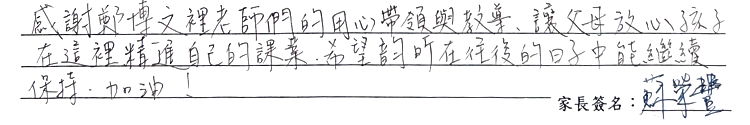 感謝鄭博文裡老師們的用心帶領與教導、讓父母放心孩子
在這裡精進自己的課業.希望韵昕在往後的日子中能繼續
保持.加油!
家長簽名:蘇榮豐